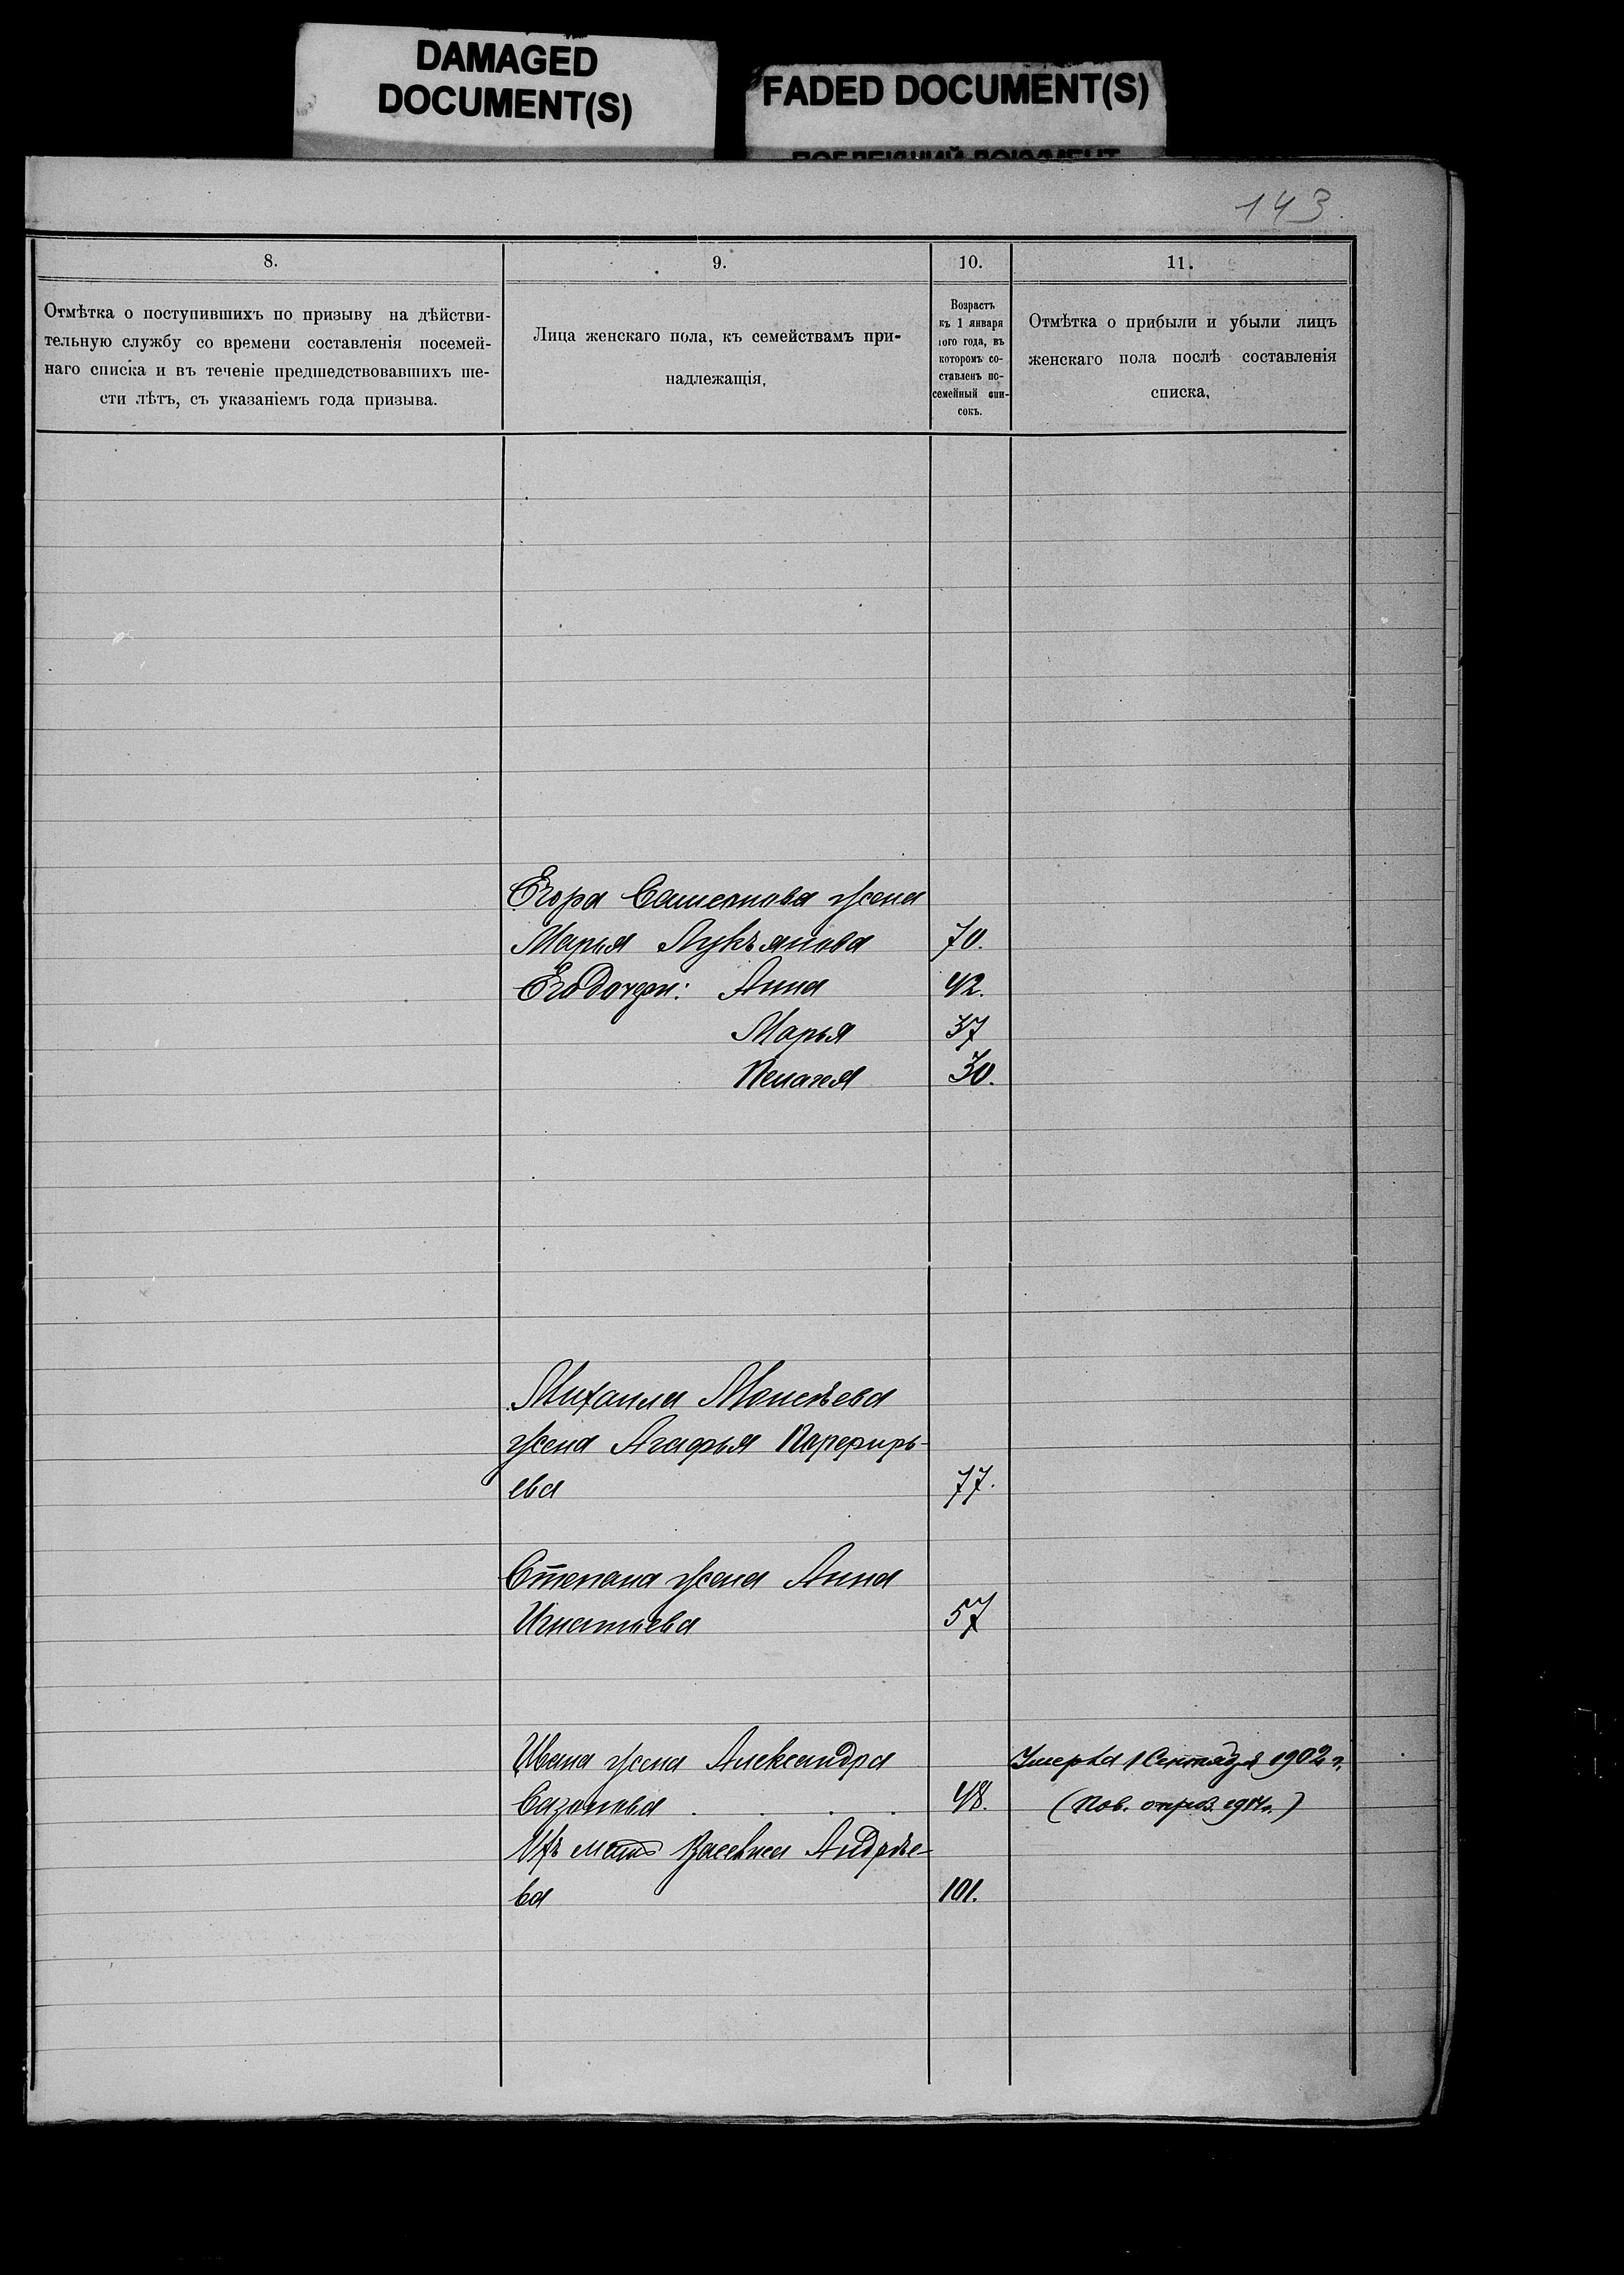 DAMAGED
DOCUMENT(S)
FADED DOCUMENT(S)
143.
8.
9.
10.
11.
Отмѣтка о поступившихъ по призыву на дѣйстви-
тельную службу со времени составленія посемей-
наго списка и въ теченіе предшедствовавшихъ ше-
сти лѣтъ, съ указаніемъ года призыва.
Лица женскаго пола, къ семействамъ при-
надлежащія.
Возрастъ
къ 1 января
того года, въ
которомъ со-
ставленъ по-
семейный спи-
сокъ.
Отмѣтка о прибыли и убыли лицъ
женскаго пола послѣ составленія
списка.
Егора жена
Марья Лукьянова 70.
Его дочери: Анна 42.
Марья 37
Пелагея 30.
Михаила Моисѣева
жена Агафья Парфирь-
ева 77.
Степана жена Анна
Игнатьева 57
Ивана жена Александра Умерла 1 Сентября 1902 г.
Сазонова . . . . 48. (Пов.)
Ихъ мать Васелиса Андрѣе-
ва 101.